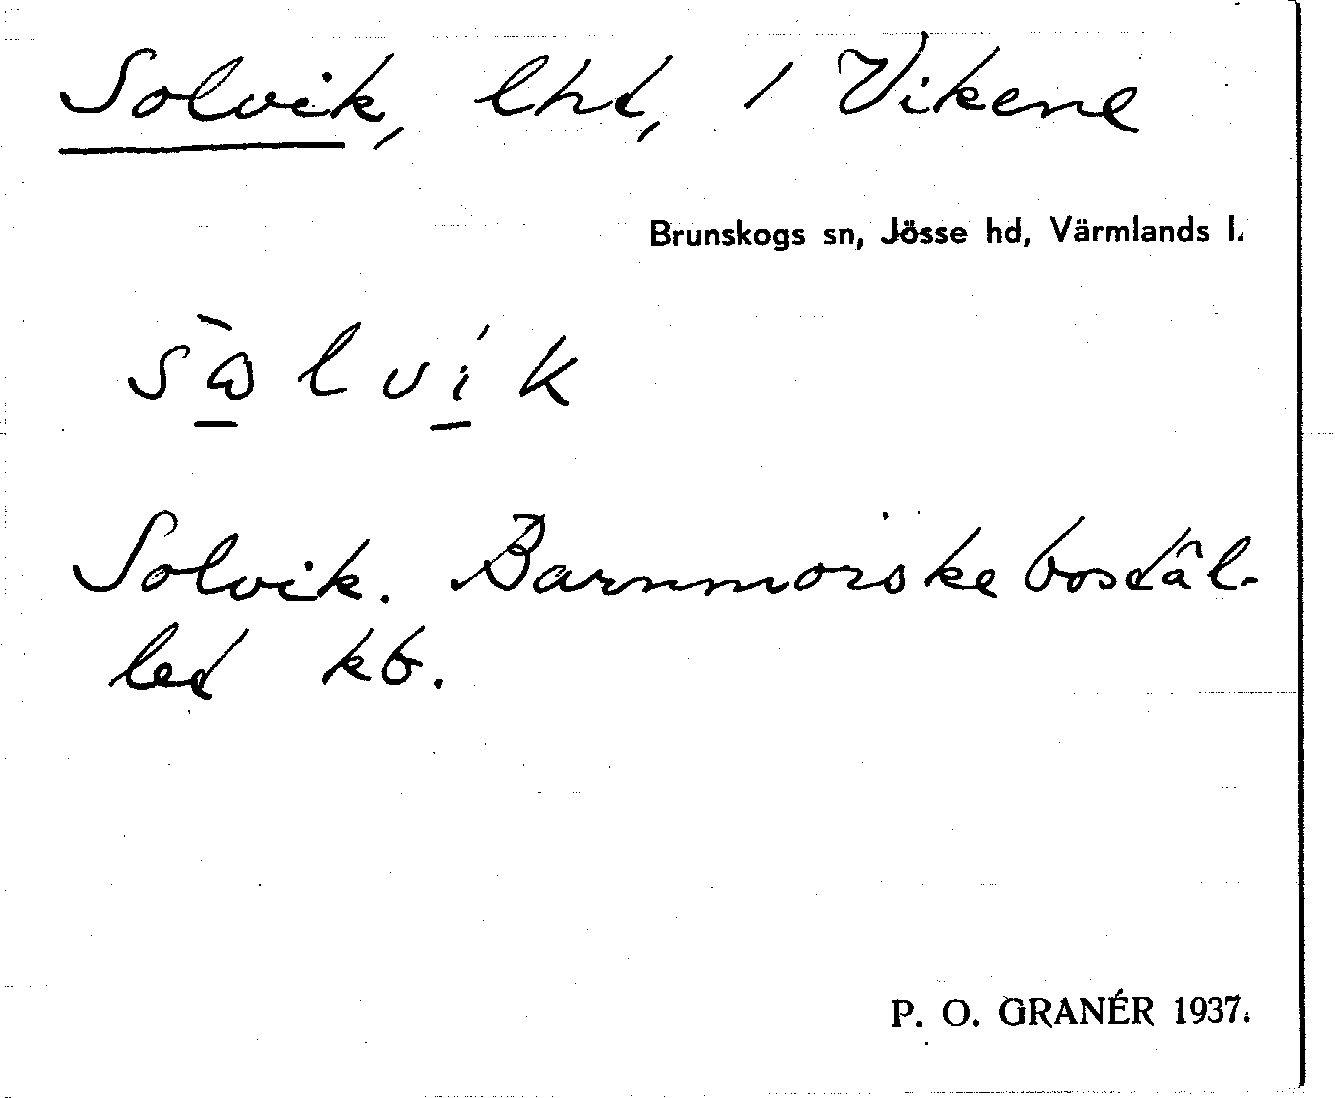 Solvik, lht, / Vikene
Brunskogs sn, Jösse hd, Värmlands l.
Solvik. Barnmorskebostäl-
let kb.
P. O. GRANÉR 1937.